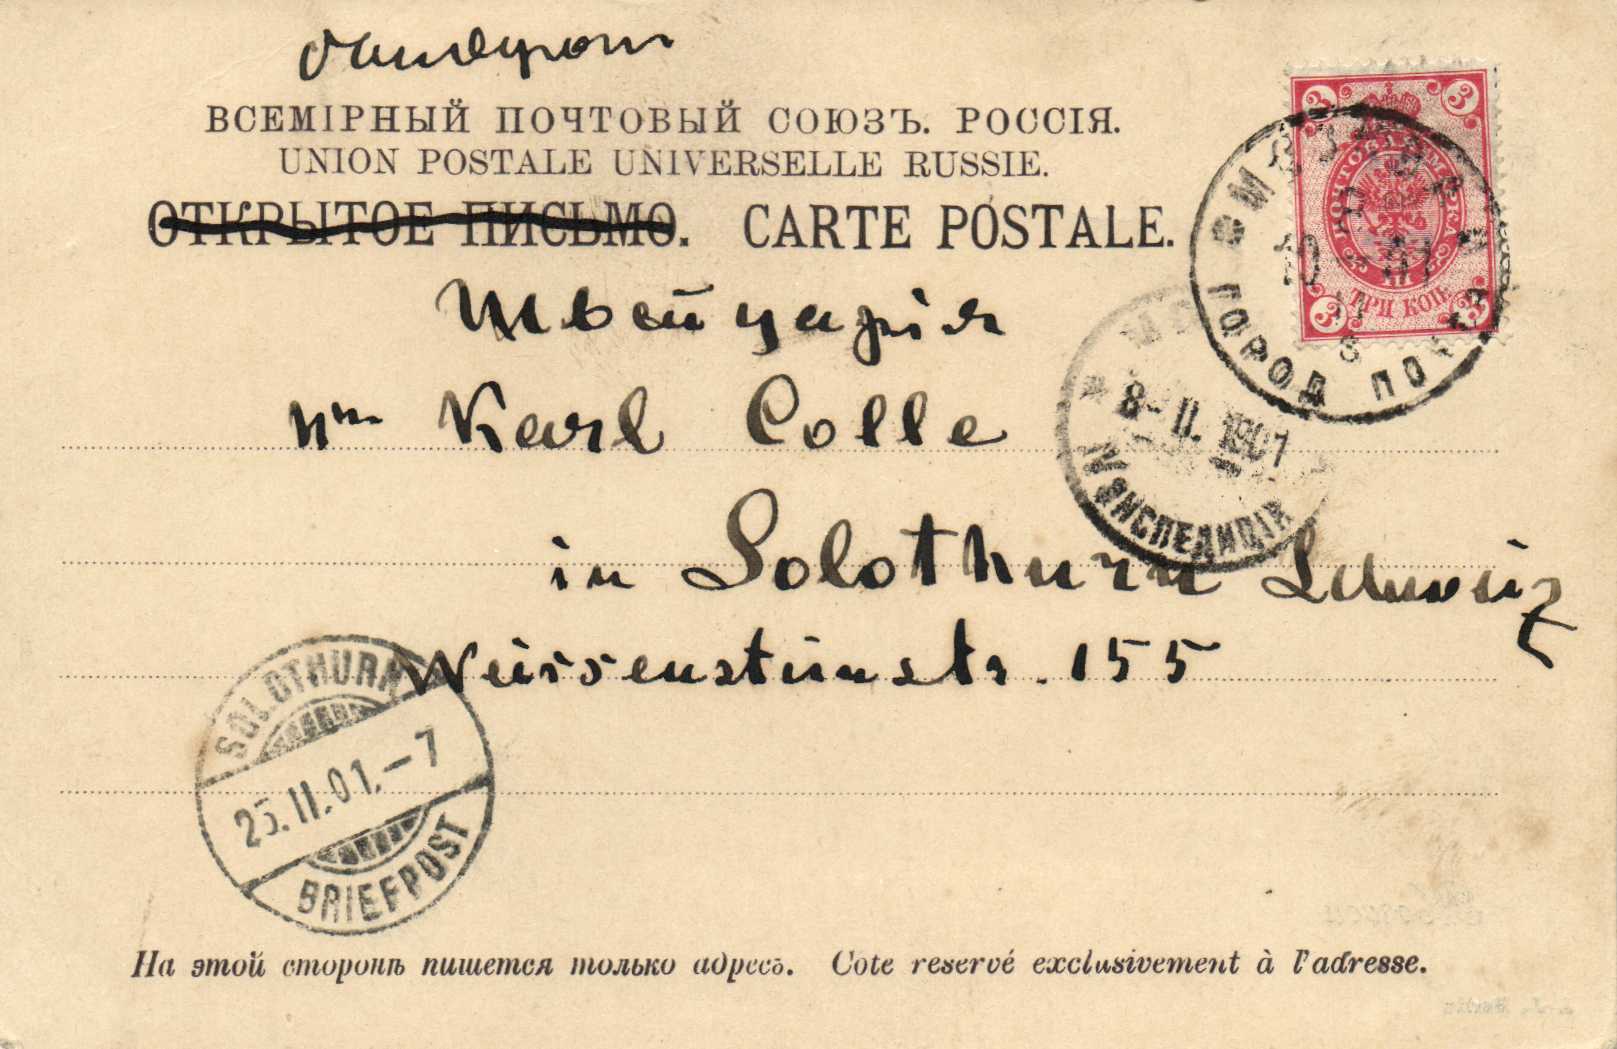 ВСЕМІРНЫЙ ПОЧТОВЫЙ СОЮЗЪ. РОССІЯ.
UNION POSTALE UNIVERSELLE RUSSIE.
ОТКРЫТОЕ ПИСЬМО. CARTE POSTALE.
3 3
ПОЧТОВАЯ МАРКА
ТРИ КОП.
3 3
ГОРОД ПОЧТА
Швейцарія
8-II.1901
ЭКСПЕДИЦІЯ
Karl Colle
in Solothurn Schweiz
Weissensteinstr. 155
SOLOTHURN
25.II.01.-7
BRIEFPOST
На этой сторонѣ пишется только адресъ. Cote reservé exclusivement à l'adresse.